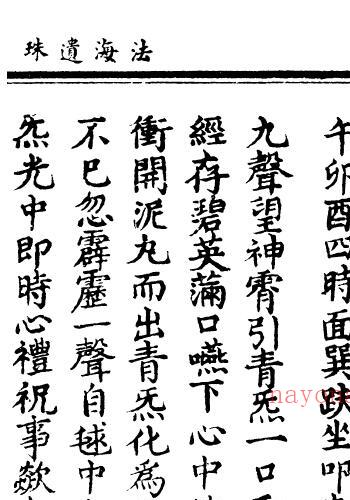 法海遺珠
午卯酉四時面巽趺坐叩
九聲望神霄引青炁一口
經存碧英滿口嚥下心中
衝開泥丸而出青炁化為
不已忽霹靂一聲自毬中
炁光中即時心禮祝事歘